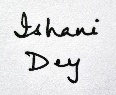 Ishani
Dey